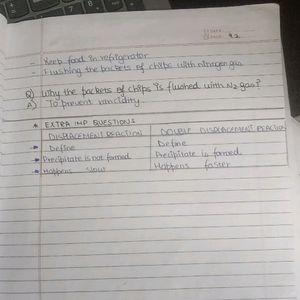 92
- Keep food in refrigerator
- Flushing the packets of chips with nitrogen gas
Q) Why the packets of chips is flushed with N2 gas?
A) To prevent rancidity.
* EXTRA IMP QUESTIONS
DISPLACEMENT REACTION | DOUBLE DISPLACEMENT REACTION
→ Define | Define
→ Precipitate is not formed | Precipitate is formed
→ Happens slow | Happens faster